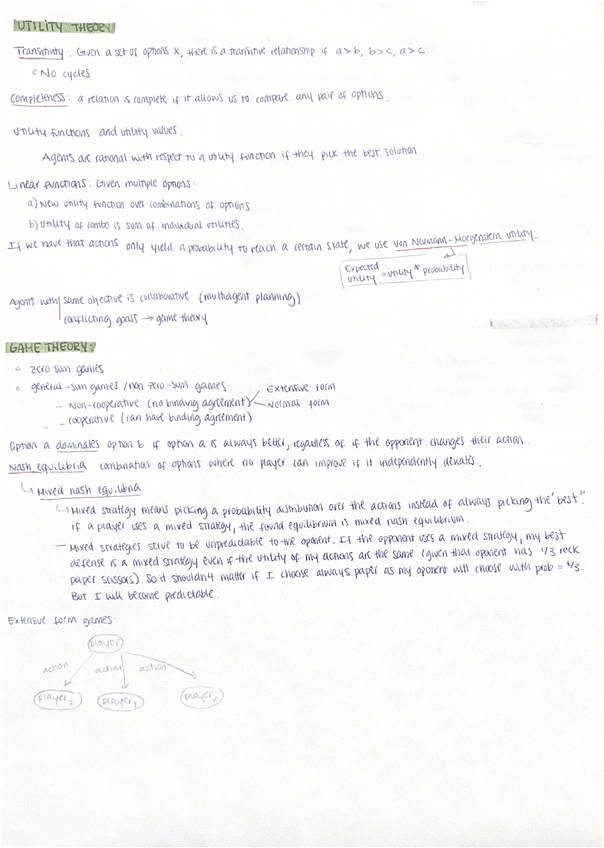 UTILITY THEORY
Transitivity: Given a set of options X, there is a transitive relationship if a>b, b>c, a>c
No cycles
Completeness: a relation is complete if it allows us to compare any pair of options.
Utility functions and utility values.
Agents are rational with respect to a utility function if they pick the best solution.
Linear functions: Given multiple options:
a) New utility function over combinations of options
b) Utility of combo is sum of individual utilities.
If we have that actions only yield a probability to reach a certain state, we use Von Neumann-Morgenstern utility.
Expected utility = utility * probability
Agents with same objective is collaborative (multiagent planning)
conflicting goals → game theory
GAME THEORY:
zero sum games
general-sum games / non zero-sum games
- Non-cooperative (no binding agreement) Extensive form
Normal form
- cooperative (can have binding agreement)
Option a dominates option b if option a is always better, regardless of if the opponent changes their action.
Nash equilibria combination of options where no player can improve if it independently deviates.
Mixed nash equilibria
Mixed strategy means picking a probability distribution over the actions instead of always picking the "best".
if a player uses a mixed strategy, the found equilibrium is mixed nash equilibrium.
— Mixed strategies serve to be unpredictable to the oponent. If the opponent uses a mixed strategy, my best
defense is a mixed strategy even if the utility of my actions are the same (given that oponent has 1/3 rock
paper scissors). So it shouldn't matter if I choose always paper as my oponent will choose with prob = 1/3.
But I will become predictable.
Extensive form games:
player
action action action
player2 player2 player2